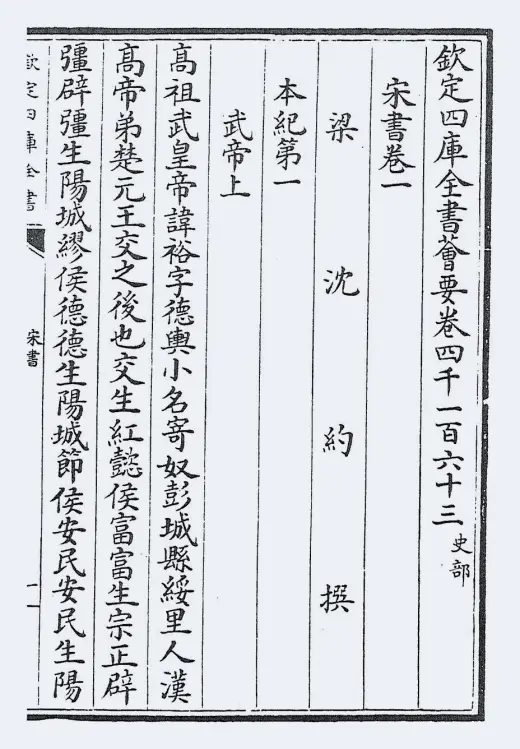 欽定四庫全書薈要卷四千一百六十三 史部
宋書卷一
梁 沈 約 撰
本紀第一
武帝上
髙祖武皇帝諱裕字德輿小名寄奴彭城縣綏里人漢
髙帝弟楚元王交之後也交生紅懿侯富富生宗正辟
彊辟彊生陽城繆侯德德生陽城節侯安民安民生陽
欽定四庫全書
宋書
一